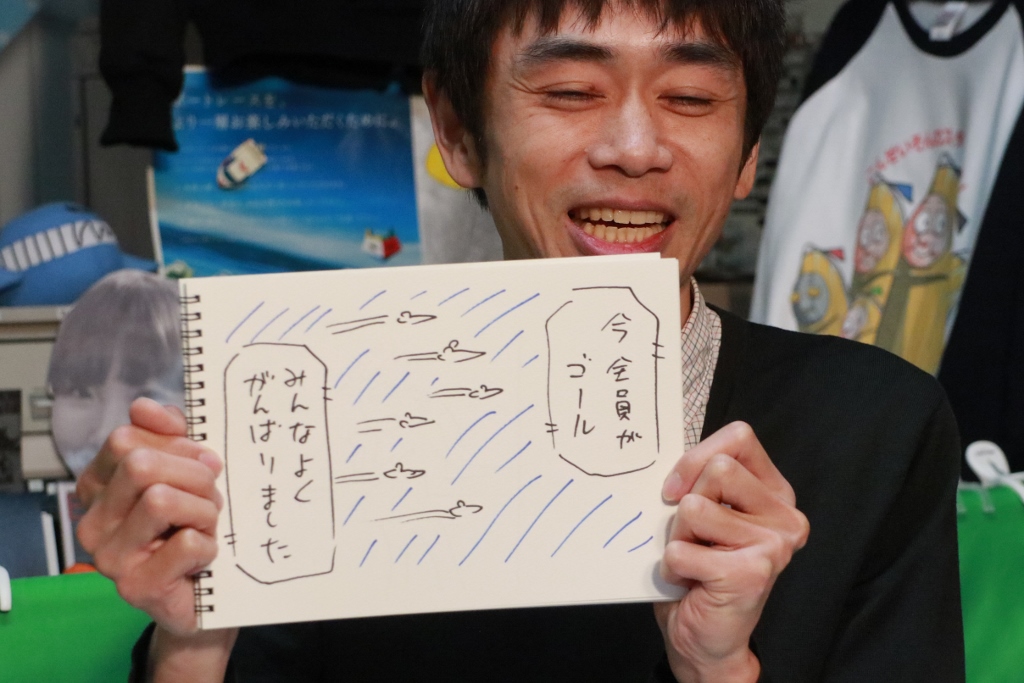 ートレースを、
より一層お楽しみいただくために。
今 全員が
ゴール
みんなよく
がんばりました